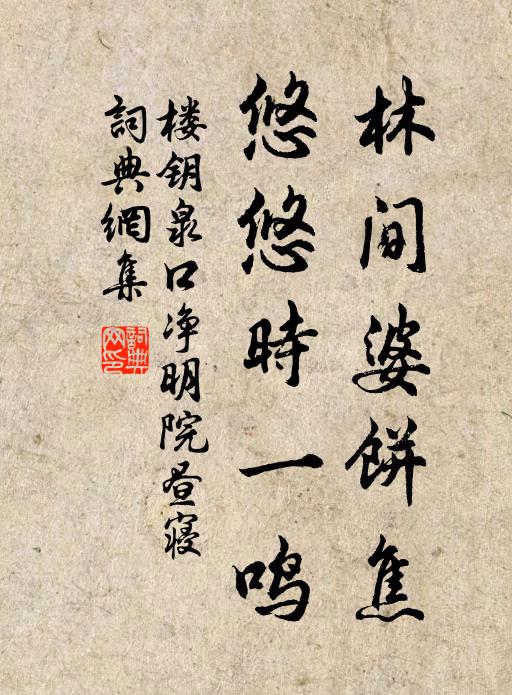 林间婆餅焦
悠悠時一鸣
楼钥泉口净明院昼寝
詞典網集
詞典网印